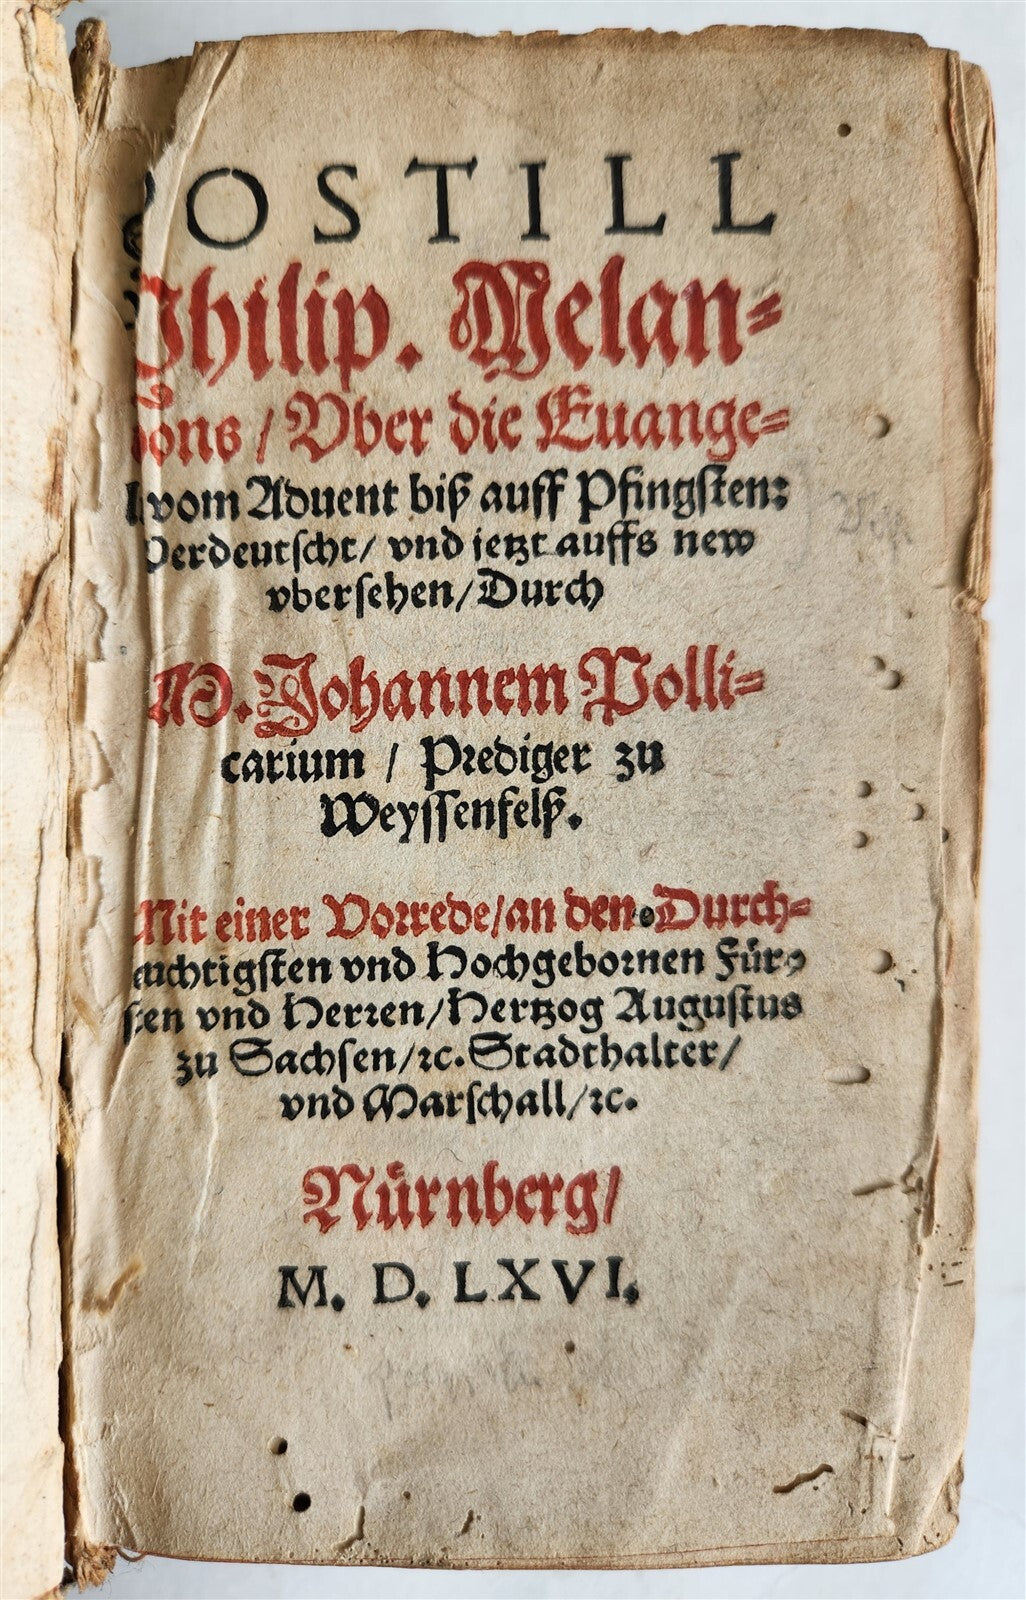 POSTILL
Philip. Melan-
thons / Vber die Euange-
vom Aduent biß auff Pfingsten:
Verdeutscht / vnd jetzt auffs new
vbersehen / Durch
M. Johannem Polli-
carium / Prediger zu
Weyssenfelß.
Mit einer Vorrede / an den Durch-
leuchtigsten vnd Hochgebornen Für-
sten vnd Herren / Hertzog Augustus
zu Sachsen / ꝛc. Stadthalter /
vnd Marschall / ꝛc.
Nürnberg /
M. D. LXVI.